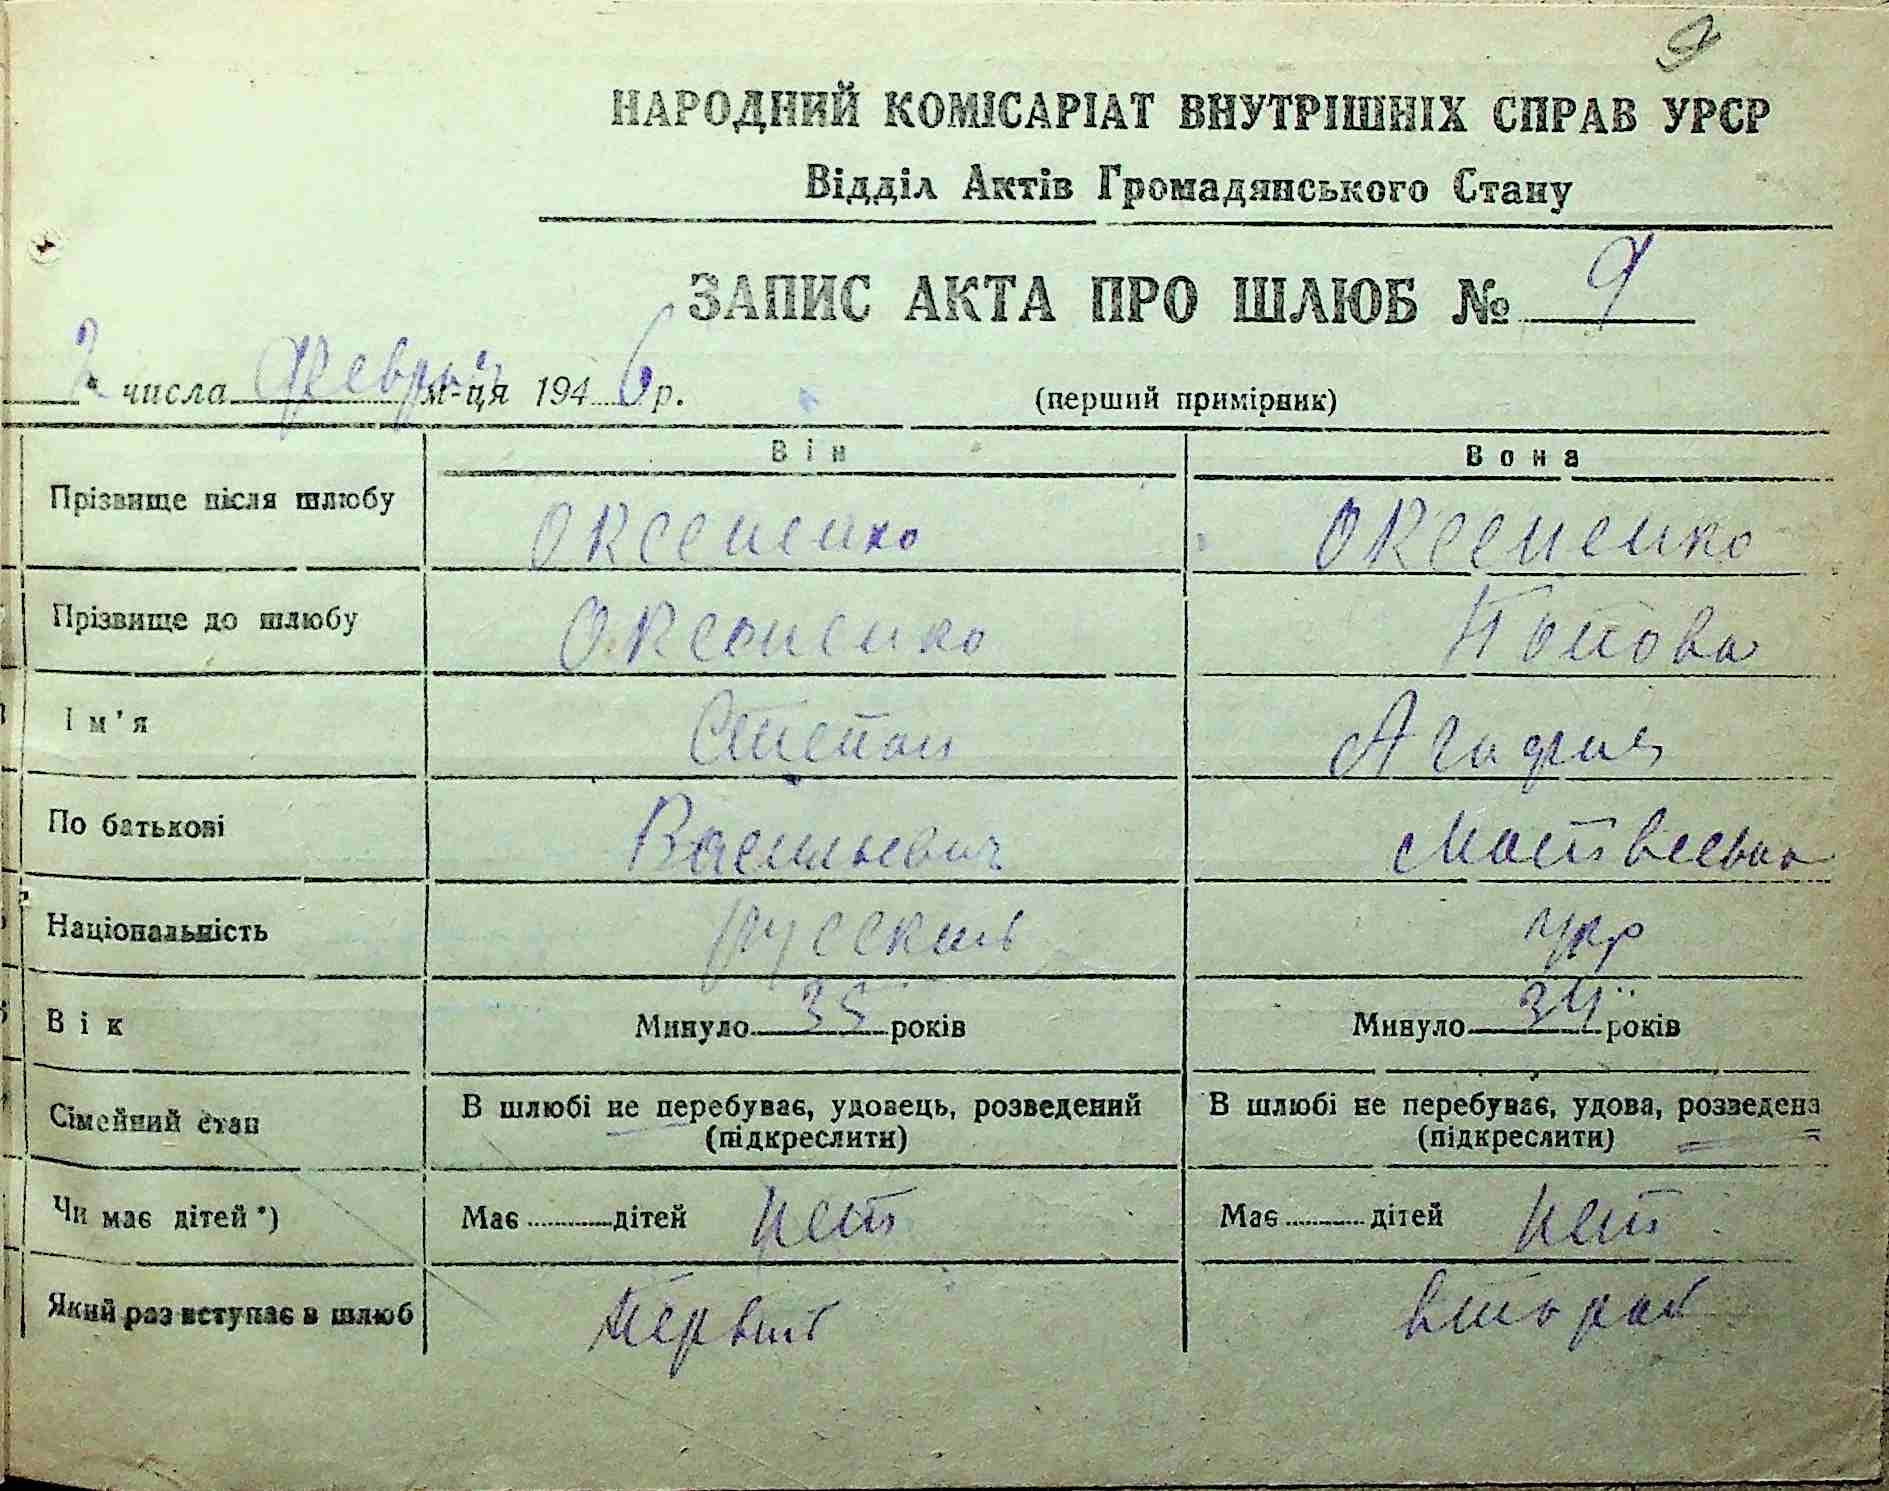 9
НАРОДНИЙ КОМІСАРІАТ ВНУТРІШНІХ СПРАВ УРСР
Відділ Актів Громадянського Стану
ЗАПИС АКТА ПРО ШЛЮБ № 9
2 числа Февраля м-ця 1946 р. (перший примірник)
Він Вона
Прізвище після шлюбу Оксененко Оксененко
Прізвище до шлюбу Оксененко Попова
Ім'я Степан Агафия
По батькові Васильевич Матвеевна
Національність русский укр
Вік Минуло 35 років Минуло 34 років
Сімейний стан В шлюбі не перебуває, удовець, розведений (підкреслити) В шлюбі не перебуває, удова, розведена (підкреслити)
Чи має дітей *) Має дітей нет Має дітей нет
Який раз вступає в шлюб Первый второй